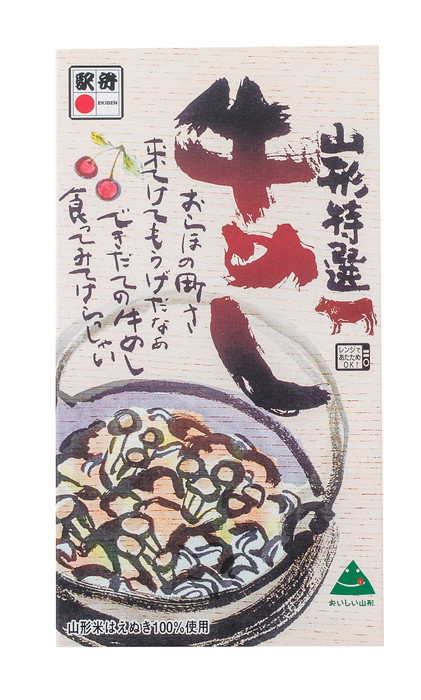 駅弁
EKIBEN
山形特選
牛めし
レンジで
あたため
OK!
おらほの町さ
来てけてもうげだなぁ
できたての牛めし
食ってみてけらっしゃい
おいしい山形
山形米はえぬき100%使用